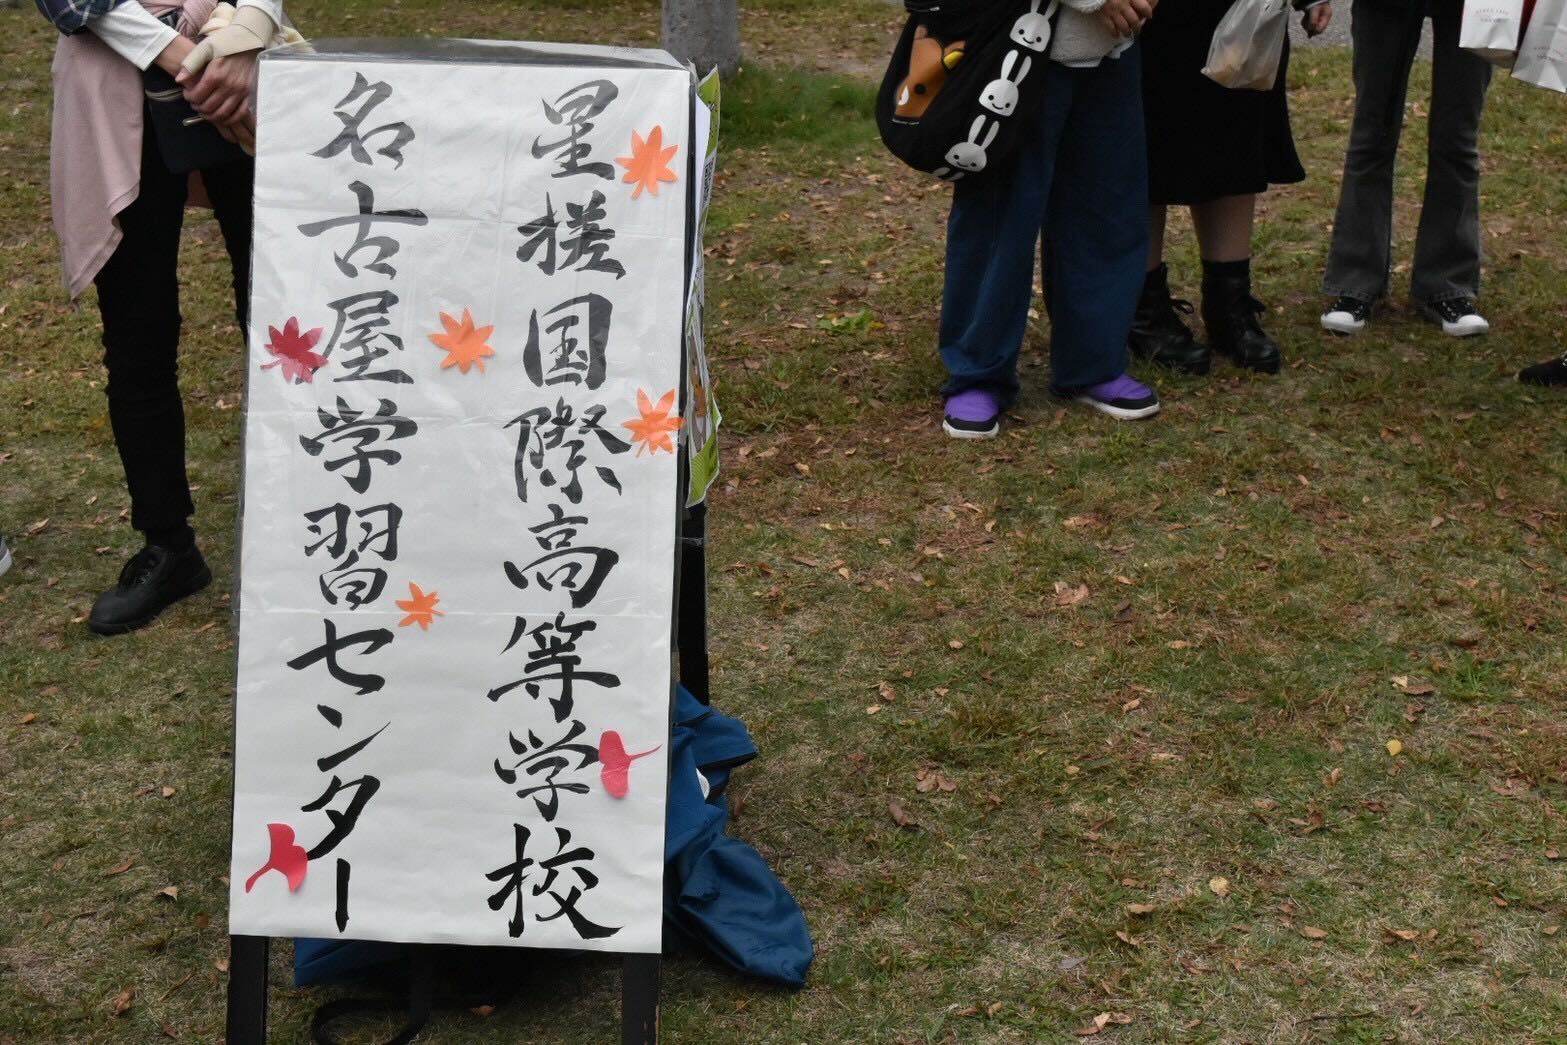 星槎国際高等学校
名古屋学習センター